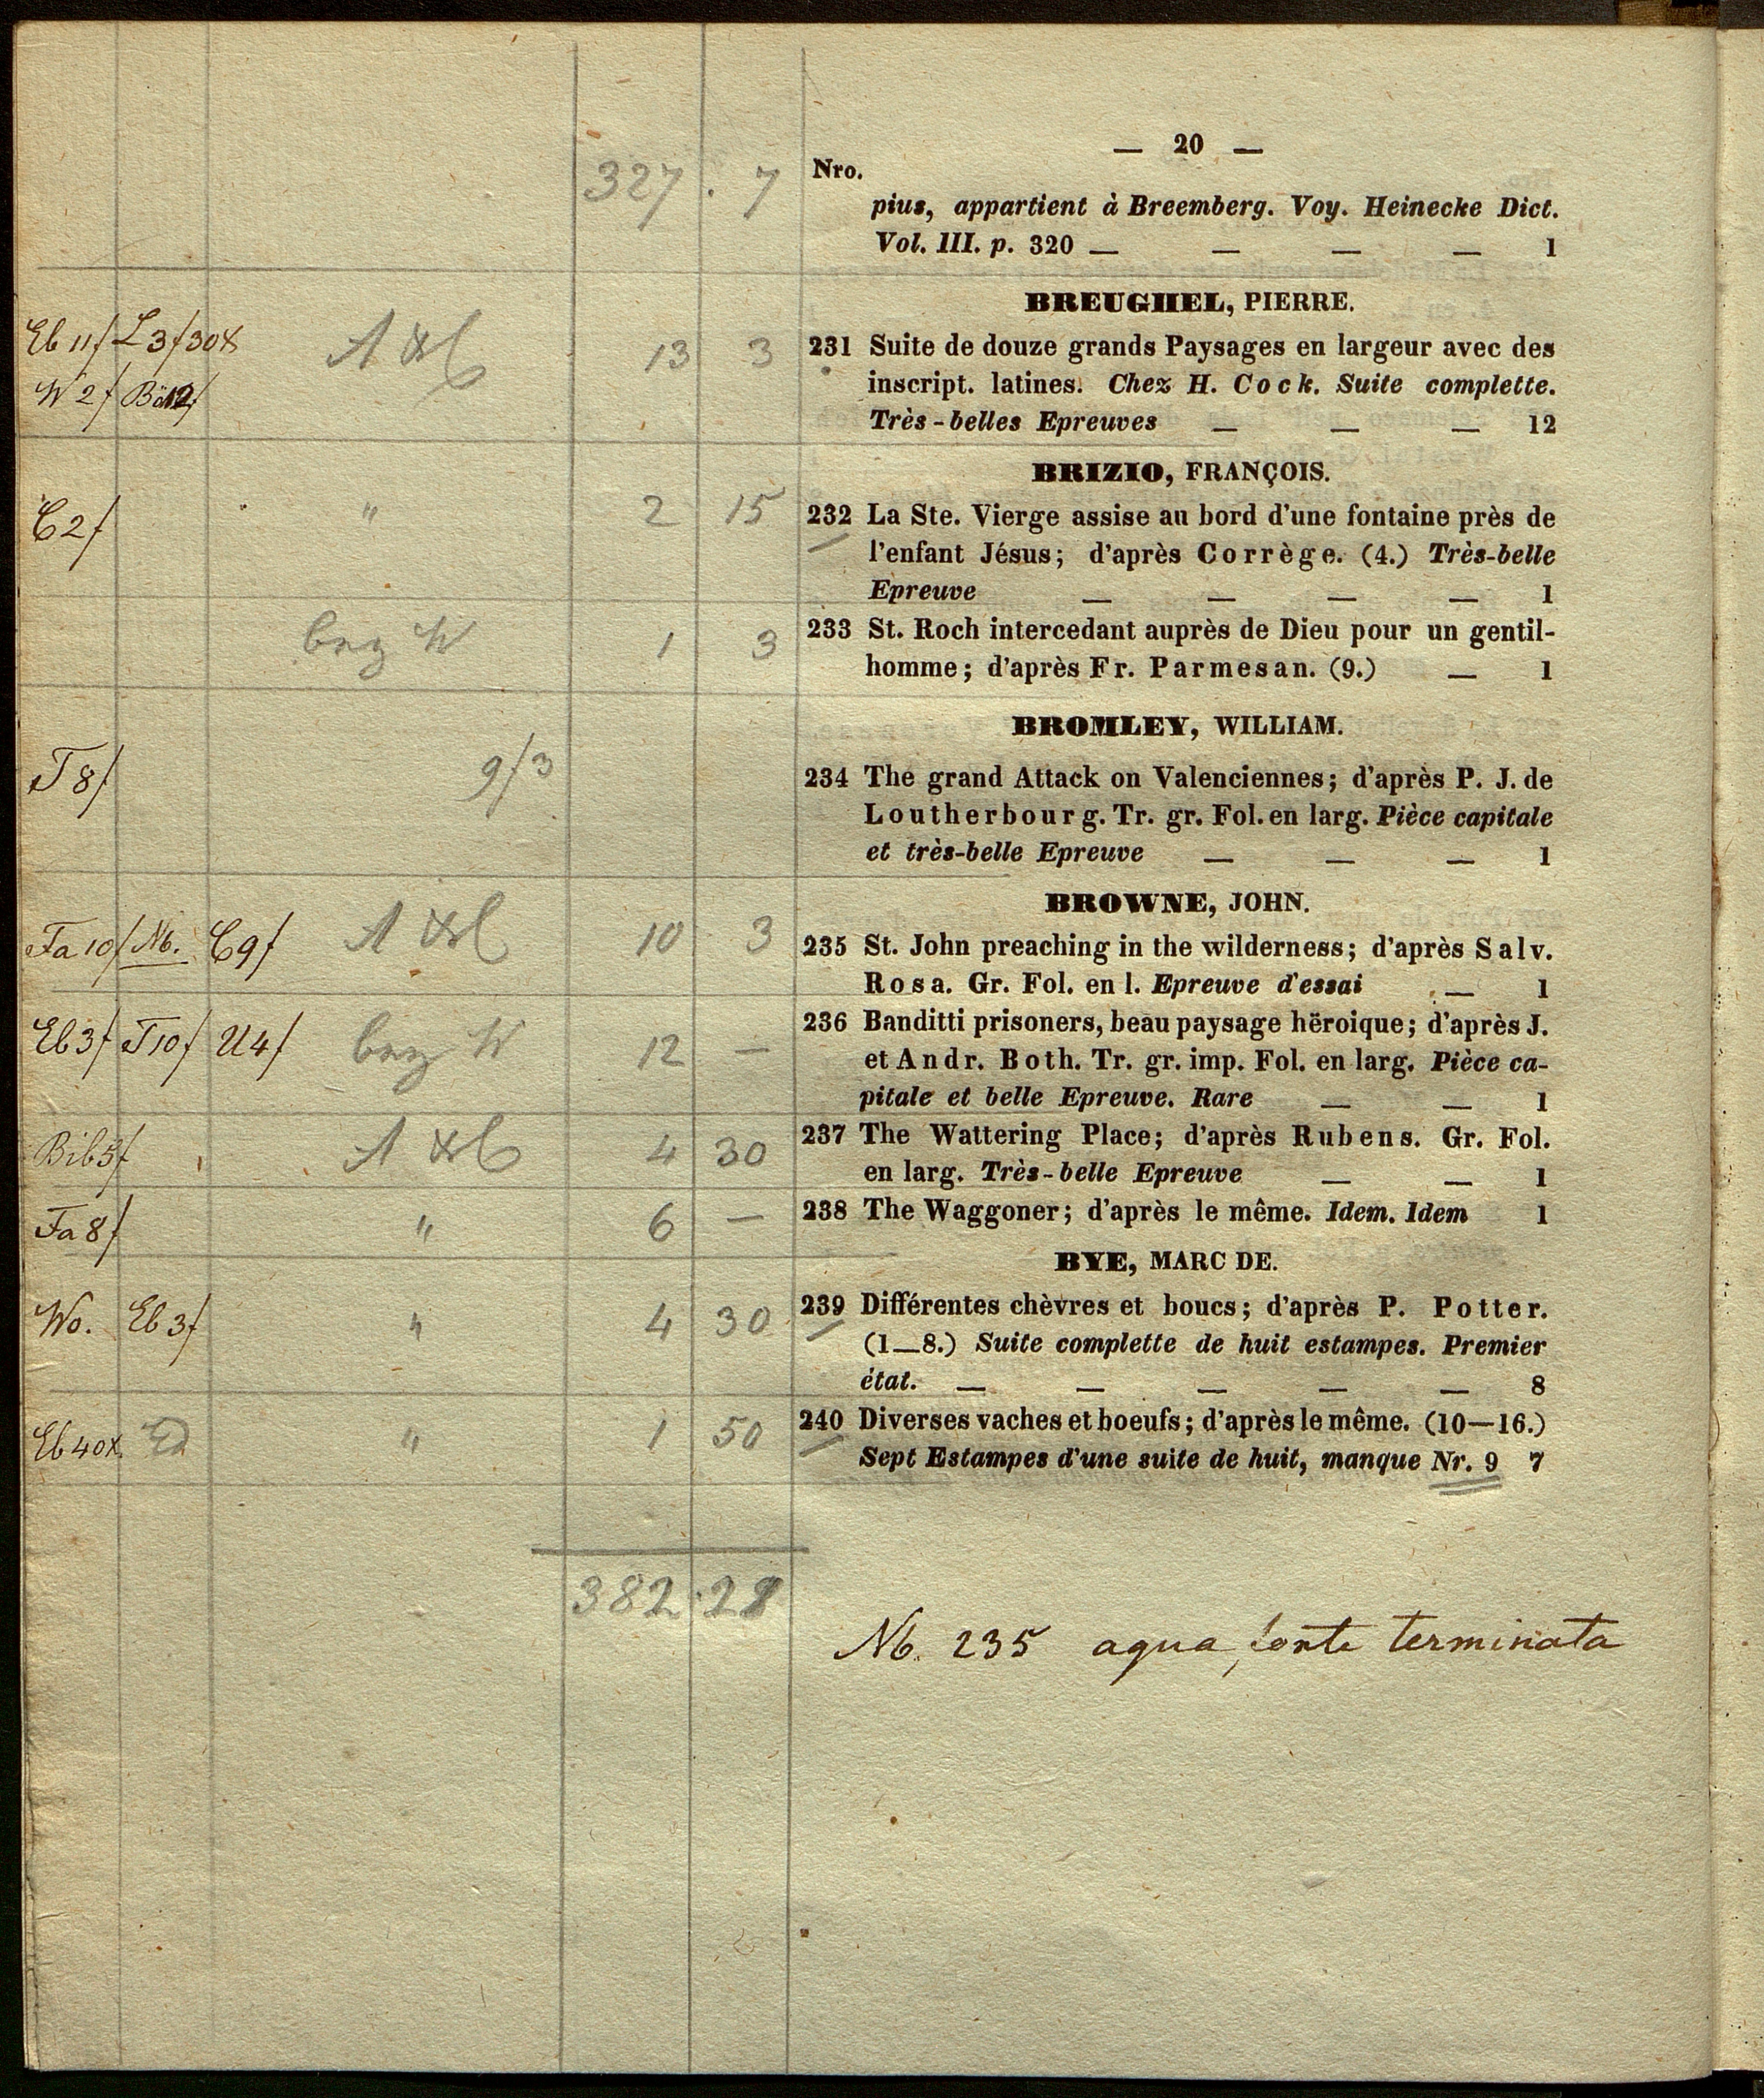 — 20 —
327 . 7
Nro.
pius, appartient à Breemberg. Voy. Heinecke Dict.
Vol. III. p. 320 — — — — 1
BREUGHEL, PIERRE.
Eb 11f L3f30x 13 3
W 2f
231 Suite de douze grands Paysages en largeur avec des
inscript. latines. Chez H. Cock. Suite complette.
Très-belles Epreuves — — — 12
BRIZIO, FRANÇOIS.
C2f " 2 15
232 La Ste. Vierge assise au bord d'une fontaine près de
l'enfant Jésus; d'après Corrège. (4.) Très-belle
Epreuve — — — — 1
bez W 1 3
233 St. Roch intercedant auprès de Dieu pour un gentil-
homme; d'après Fr. Parmesan. (9.) — 1
BROMLEY, WILLIAM.
T 8f 9/3
234 The grand Attack on Valenciennes; d'après P. J. de
Loutherbourg. Tr. gr. Fol. en larg. Pièce capitale
et très-belle Epreuve — — — 1
BROWNE, JOHN.
Fa 10f Nb. C9f 10 3
235 St. John preaching in the wilderness; d'après Salv.
Rosa. Gr. Fol. en l. Epreuve d'essai — 1
Eb3f T10f U4f bez W 12 —
236 Banditti prisoners, beau paysage hëroique; d'après J.
et Andr. Both. Tr. gr. imp. Fol. en larg. Pièce ca-
pitale et belle Epreuve. Rare — — 1
Bib5f 4 30
237 The Wattering Place; d'après Rubens. Gr. Fol.
en larg. Très-belle Epreuve — — 1
Fa 8f " 6 —
238 The Waggoner; d'après le même. Idem. Idem 1
BYE, MARC DE.
Wo. Eb 3f " 4 30
239 Différentes chèvres et boucs; d'après P. Potter.
(1—8.) Suite complette de huit estampes. Premier
état. — — — — — 8
Eb40x " 1 50
240 Diverses vaches et boeufs; d'après le même. (10—16.)
Sept Estampes d'une suite de huit, manque Nr. 9 7
382 . 28
Nb. 235 aqua forte terminata